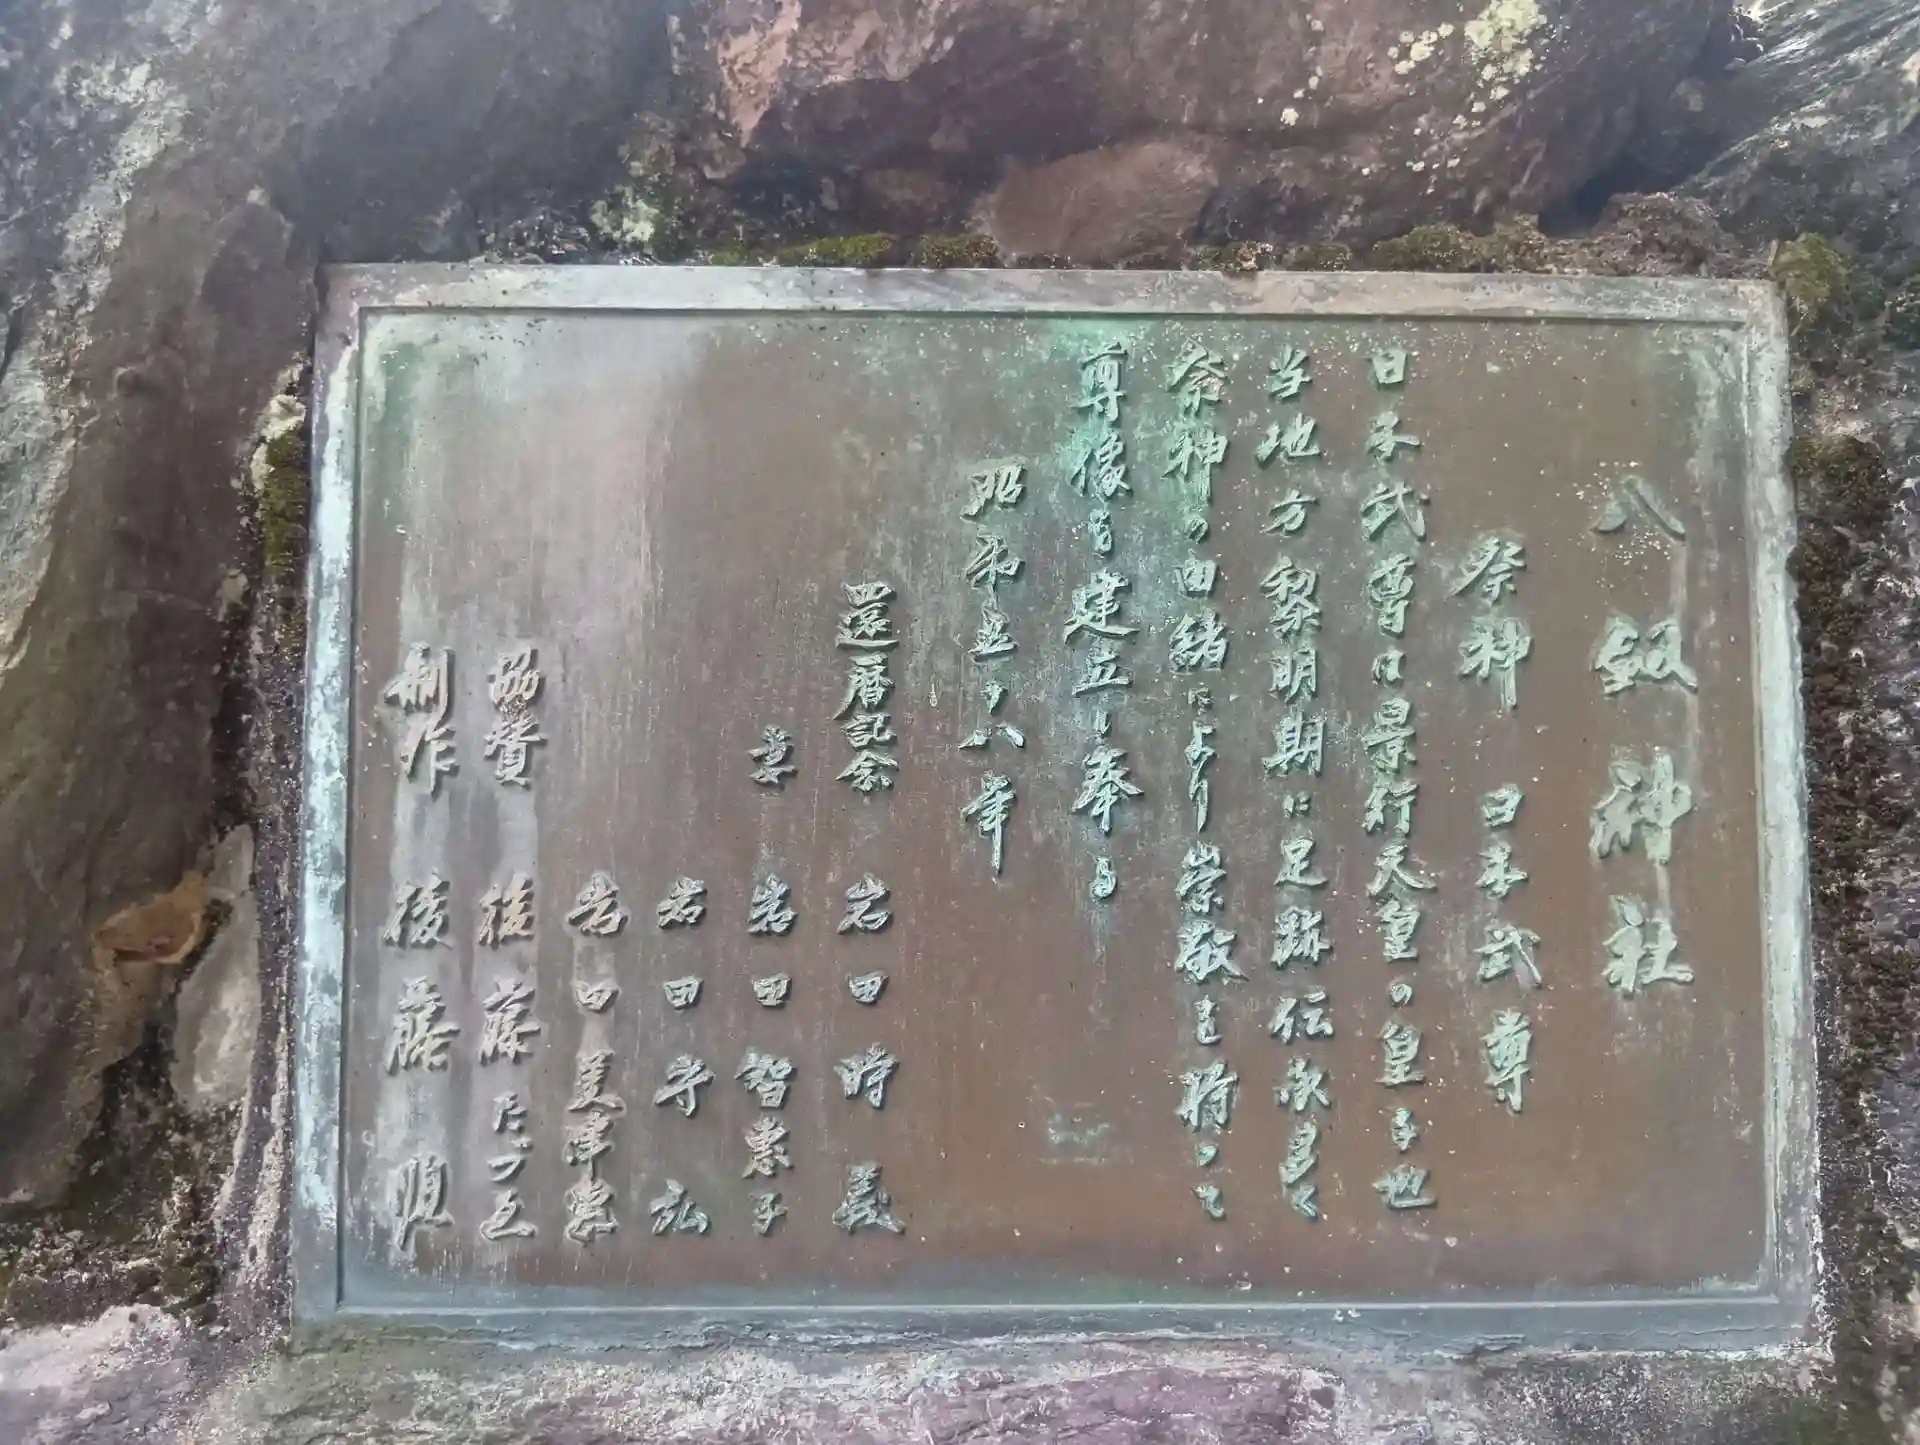 八釼神社
祭神 日本武尊
日本武尊は景行天皇の皇子也
当地方黎明期に足跡伝承多く
祭神の由緒により崇敬を捧って
尊像を建立し奉る
昭和五十八年
還暦記念 岩田時義
妻 岩田智恵子
岩田守弘
岩田美津恵
協賛 後藤たづ
制作 後藤